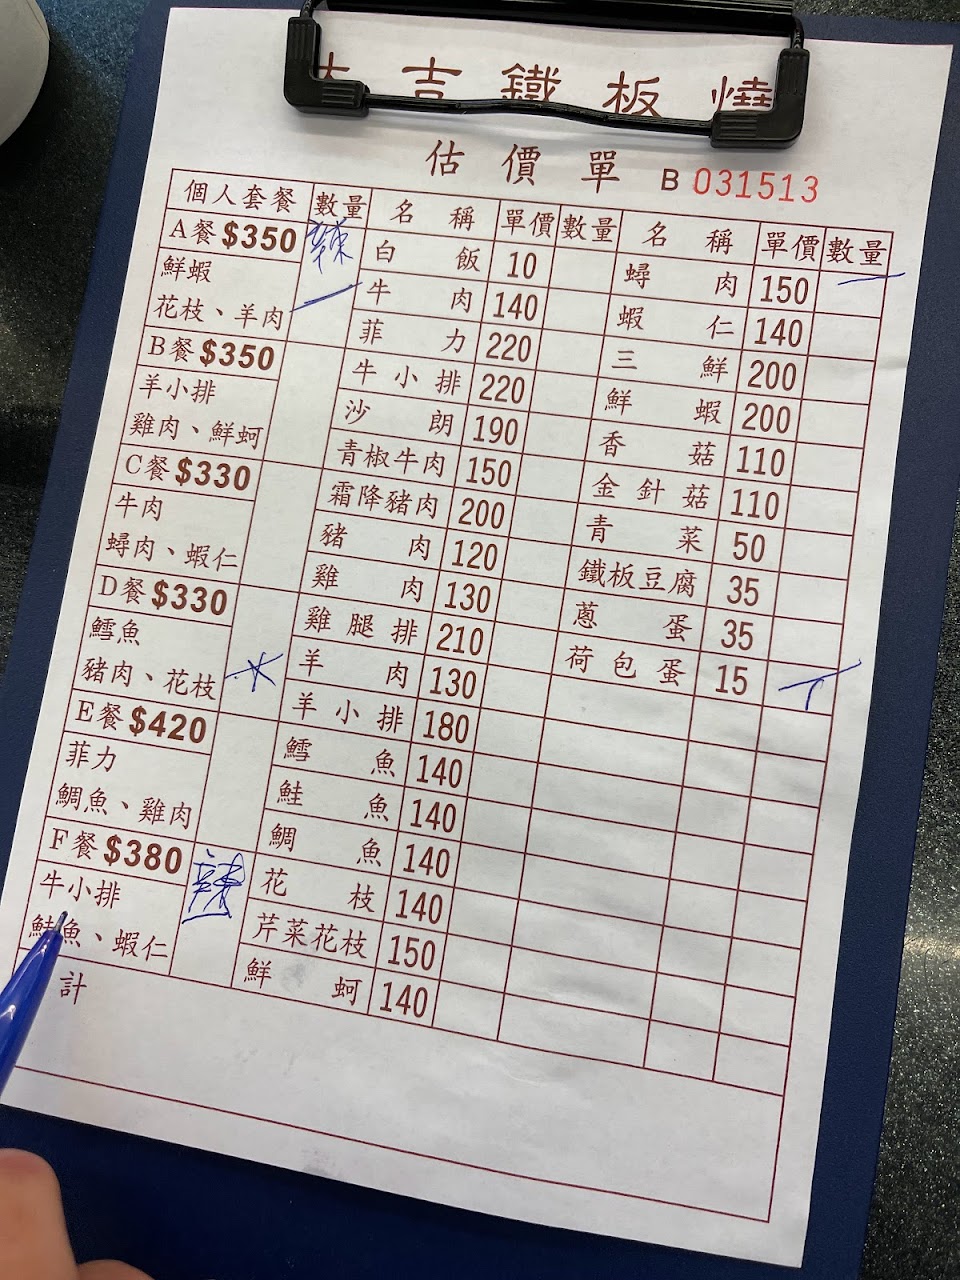 大吉鐵板燒
估價單 B 031513
個人套餐 數量
A餐 $350 辣
鮮蝦
花枝、羊肉 一
B餐 $350
羊小排
雞肉、鮮蚵
C餐 $330
牛肉
蟳肉、蝦仁
D餐 $330
鱈魚
豬肉、花枝
E餐 $420
菲力
鯛魚、雞肉
F餐 $380 辣
牛小排 一
鮭魚、蝦仁
計
名稱 單價 數量
白飯 10
牛肉 140
菲力 220
牛小排 220
沙朗 190
青椒牛肉 150
霜降豬肉 200
豬肉 120
雞肉 130
雞腿排 210
羊肉 130
羊小排 180
鱈魚 140
鮭魚 140
鯛魚 140
花枝 140
芹菜花枝 150
鮮蚵 140
名稱 單價 數量
蟳肉 150 一
蝦仁 140
三鮮 200
鮮蝦 200
香菇 110
金針菇 110
青菜 50
鐵板豆腐 35
蔥蛋 35
荷包蛋 15